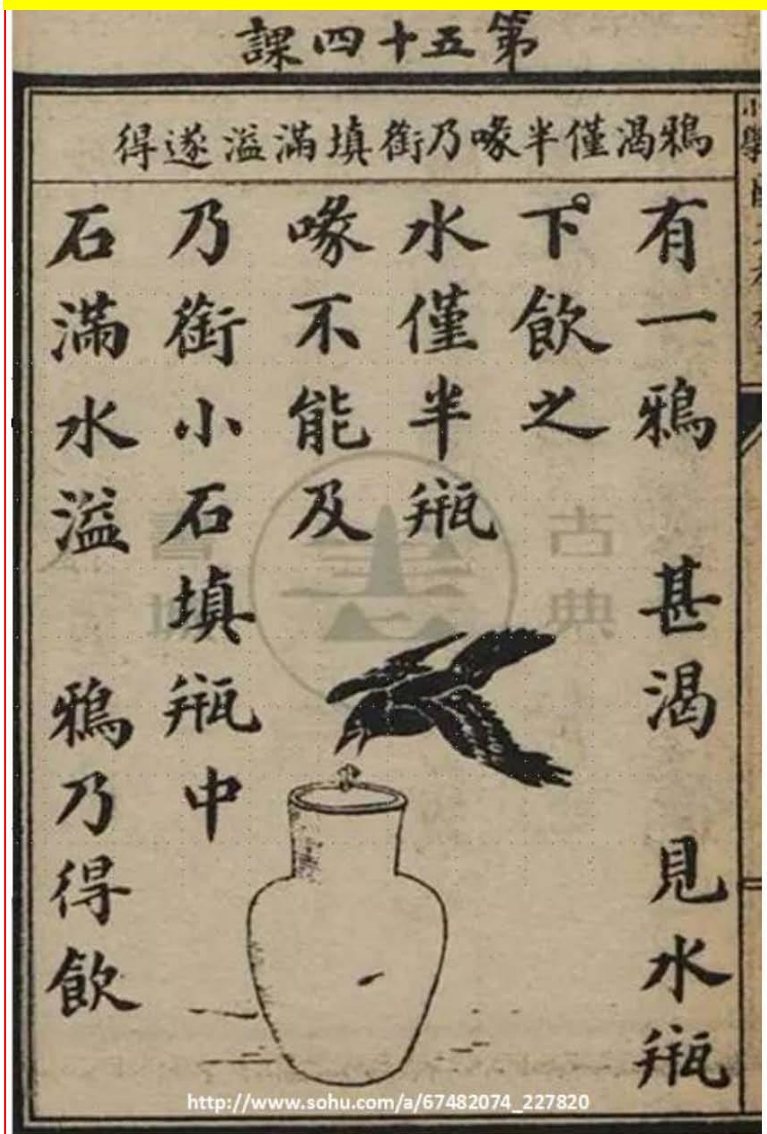 第五十四課
鴉渴僅半喙乃銜填滿溢遂得
有一鴉 甚渴 見水瓶
下飲之
水僅半瓶
喙不能及
乃銜小石填瓶中
石滿水溢 鴉乃得飲
古典書城
http://www.sohu.com/a/67482074_227820